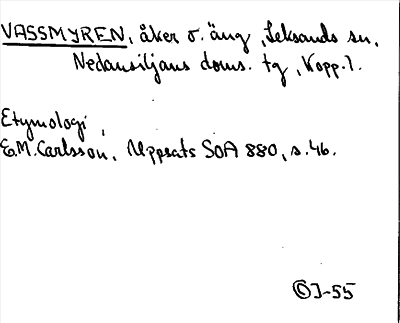 VASSMYREN, åker o. äng, Leksands sn,
Nedansiljans doms. tg, Kopp. l.
Etymologi,
E.M. Carlsson, Uppsats SOA 880, s. 46.
©J-55